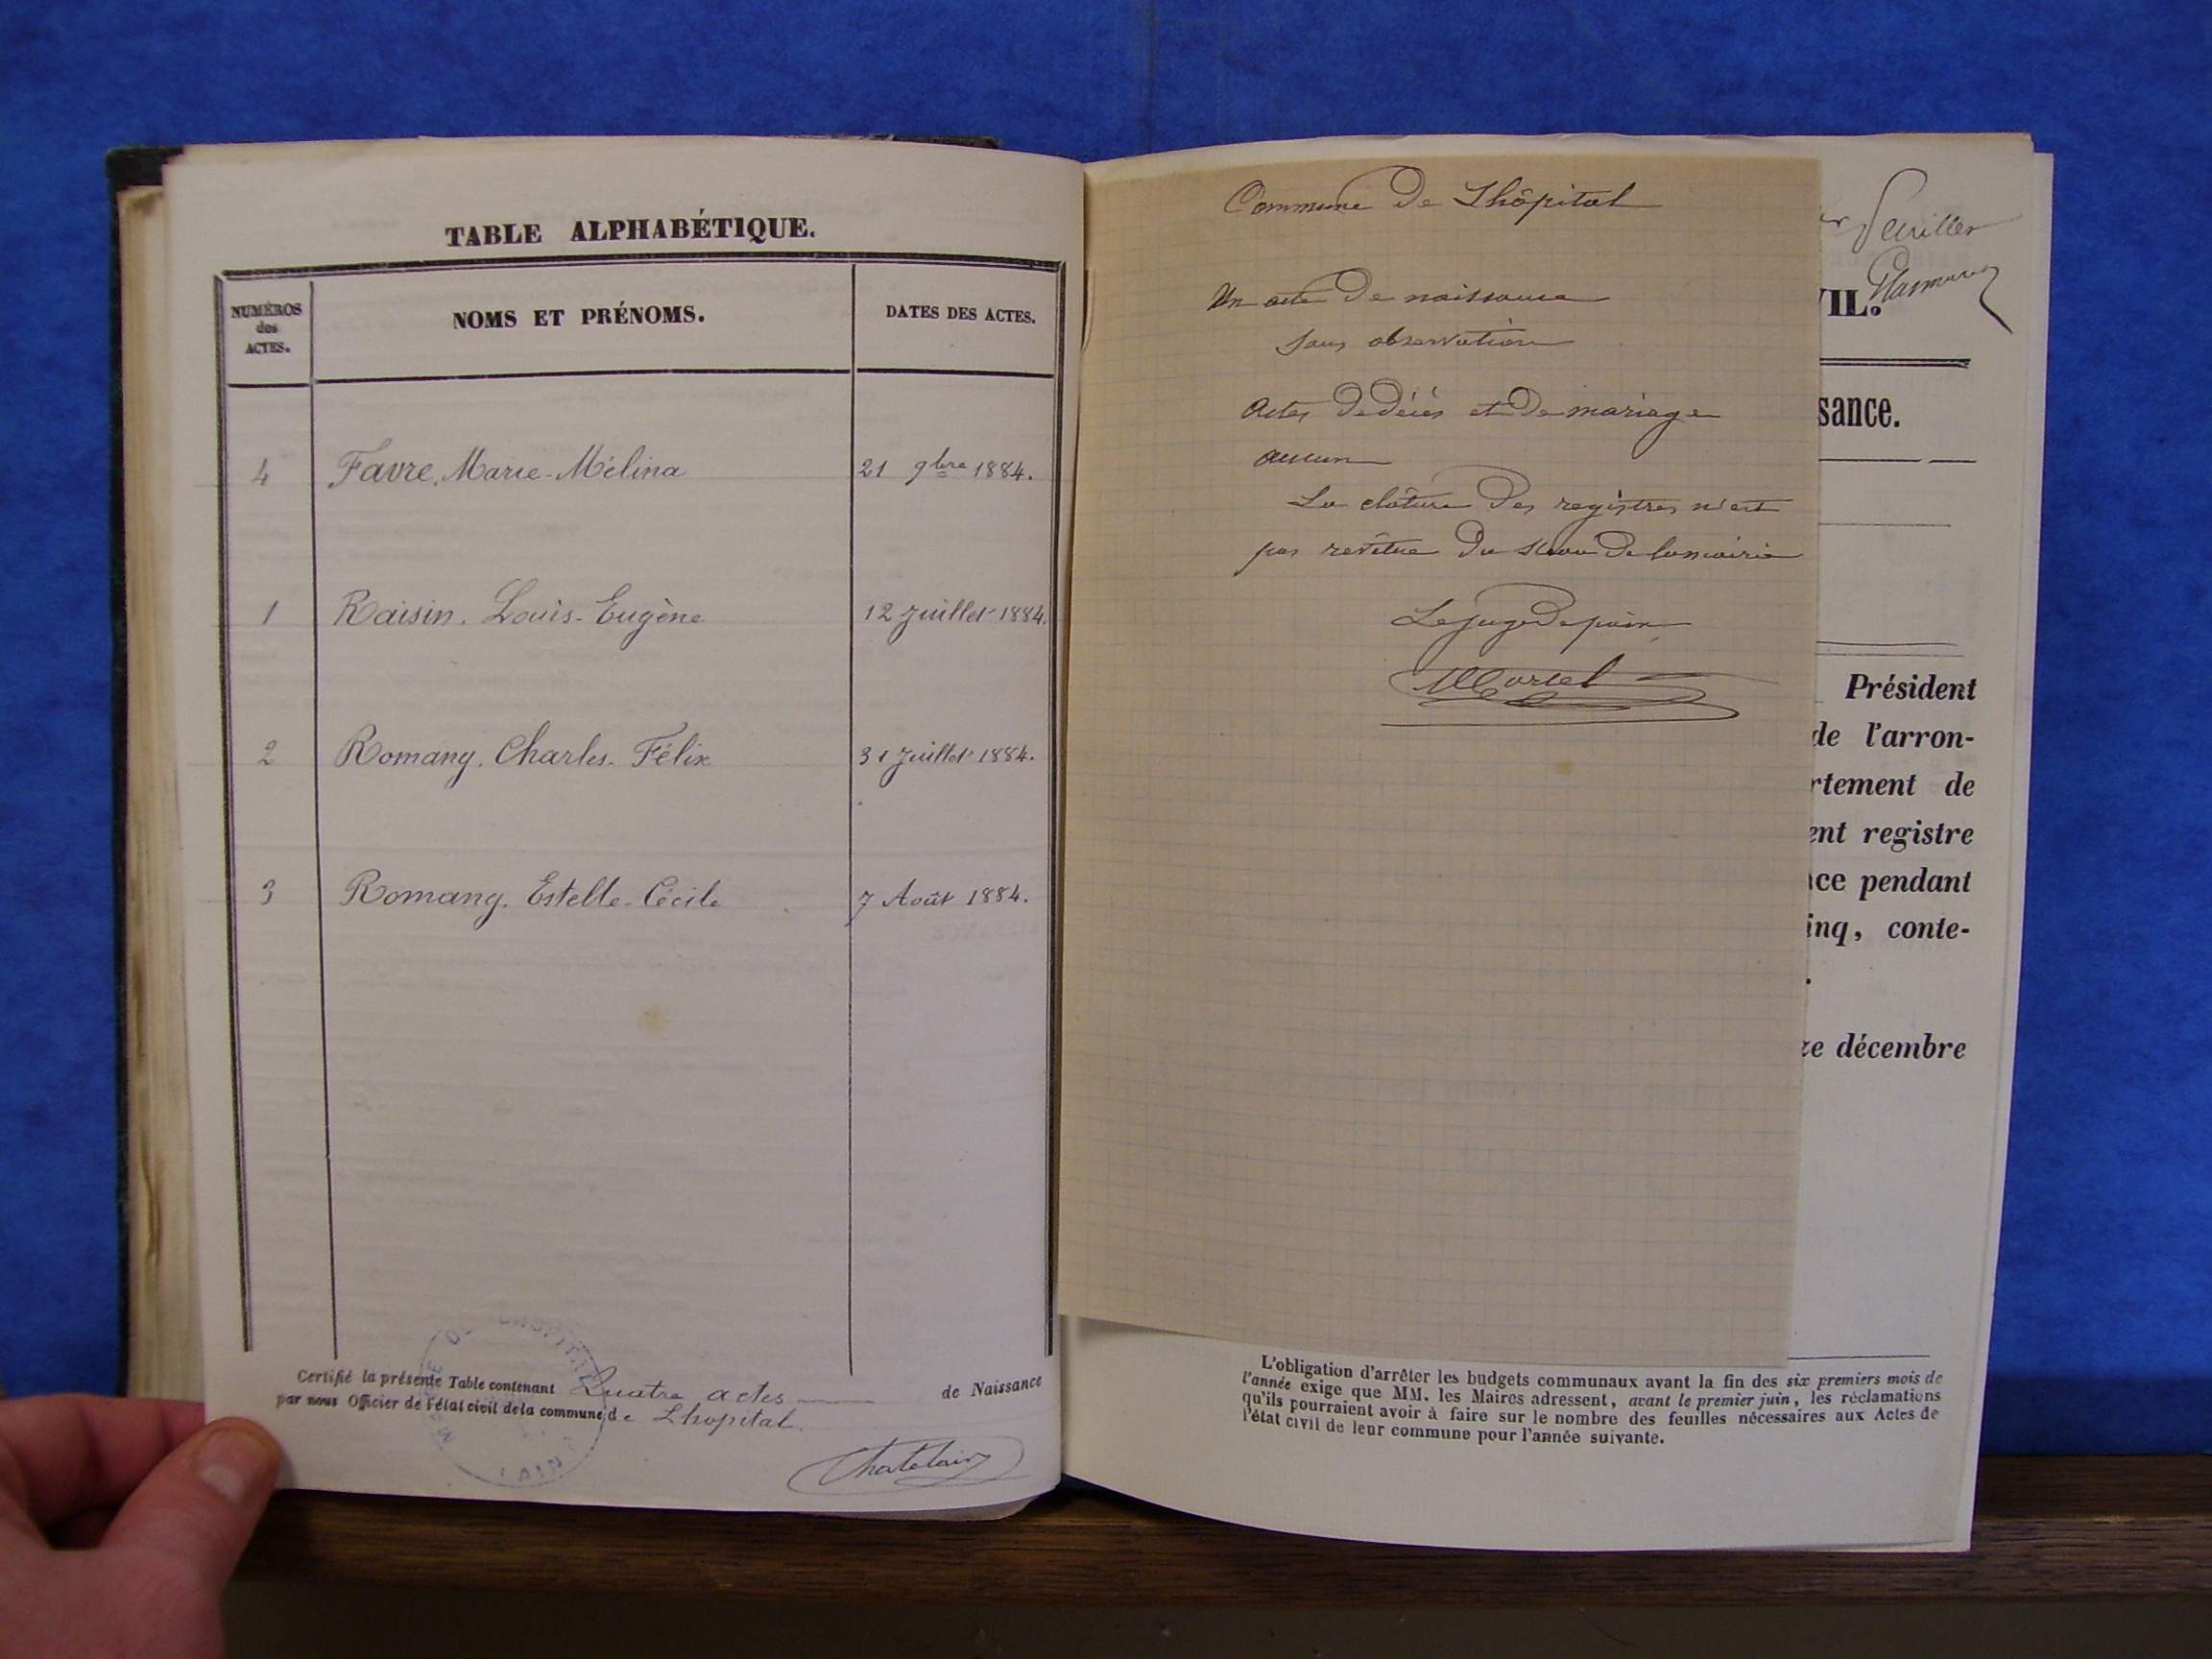 TABLE ALPHABÉTIQUE.
NUMÉROS des ACTES.
NOMS ET PRÉNOMS.
DATES DES ACTES.
4 Favre, Marie-Mélina 21 9bre 1884.
1 Raisin. Louis-Eugène 12 Juillet 1884.
2 Romany. Charles-Félix 31 Juillet 1884.
3 Romany. Estelle-Cécile 7 Août 1884.
Certifié la présente Table contenant Quatre actes de Naissance
par nous Officier de l'état civil de la commune de Lhopital.
Chatelain
Commune de Lhôpital
Un acte de naissance
sans observation
Actes de décès et de mariage
aucun
La clôture des registres n'est
pas revêtue du sceau de la mairie
Le juge de paix
Martel
Feuillet
VIL.
sance.
Président
de l'arron-
rtement de
ent registre
nce pendant
inq, conte-
ze décembre
L'obligation d'arrêter les budgets communaux avant la fin des six premiers mois de
l'année exige que MM. les Maires adressent, avant le premier juin, les réclamations
qu'ils pourraient avoir à faire sur le nombre des feuilles nécessaires aux Actes de
l'état civil de leur commune pour l'année suivante.